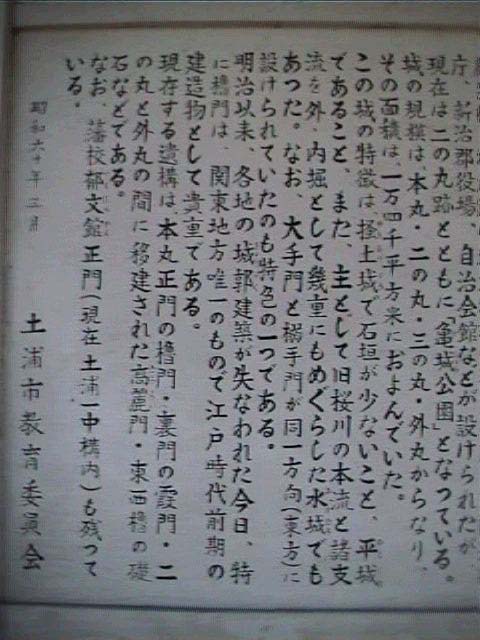 庁、新治郡役場、自治会館などが設けられたが、
現在は二の丸跡とともに「亀城公園」となっている。
城の規模は、本丸・二の丸・三の丸・外丸からなり、
その面積は、一万四千平方米におよんでいた。
この城の特徴は掻土城で石垣が少ないこと、平城
であること、また、主として旧桜川の本流と諸支
流を外、内堀として幾重にもめぐらした水城でも
あった。なお、大手門と搦手門が同一方向(東方)に
設けられていたのも特色の一つである。
明治以来、各地の城郭建築が失なわれた今日、特
に櫓門は、関東地方唯一のもので江戸時代前期の
建造物として貴重である。
現存する遺構は、本丸正門の櫓門・裏門の霞門・二
の丸と外丸の間に移建された高麗門・東西櫓の礎
石などである。
なお、藩校郁文館正門(現在土浦一中構内)も残って
いる。
昭和六十年三月
土浦市教育委員会